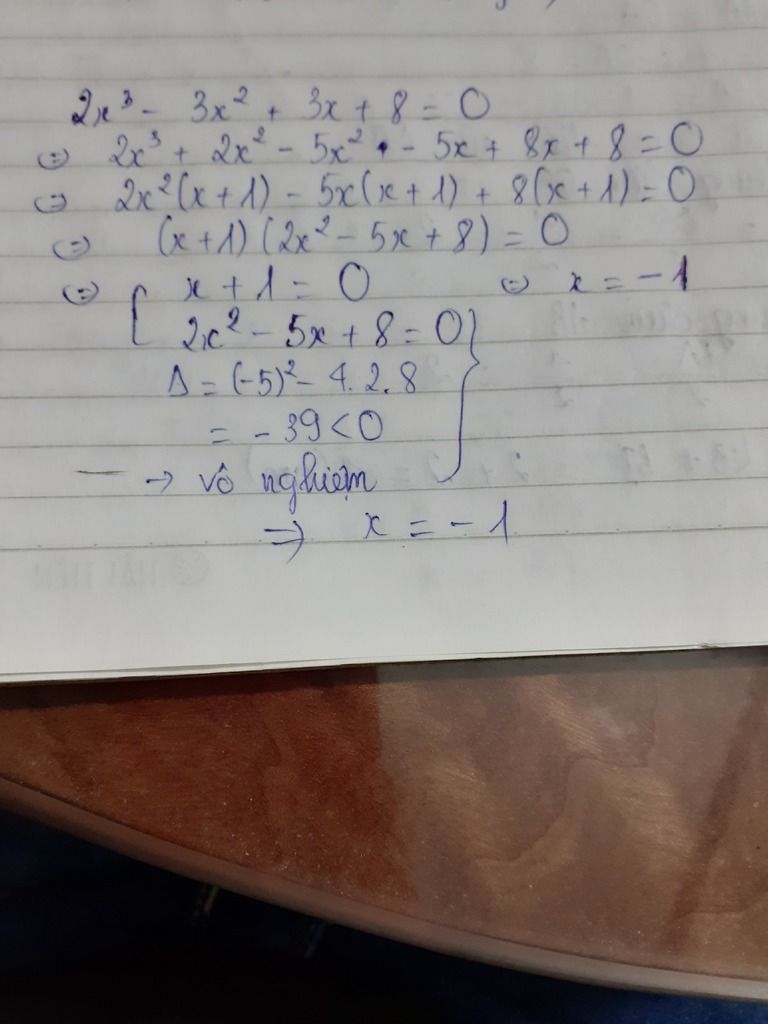 2x³ - 3x² + 3x + 8 = 0
⇔ 2x³ + 2x² - 5x² - 5x + 8x + 8 = 0
⇔ 2x²(x+1) - 5x(x+1) + 8(x+1) = 0
⇔ (x+1)(2x² - 5x + 8) = 0
⇔ [ x + 1 = 0 ⇔ x = -1
2x² - 5x + 8 = 0 }
Δ = (-5)² - 4.2.8
= -39 < 0
→ vô nghiệm
⇒ x = -1